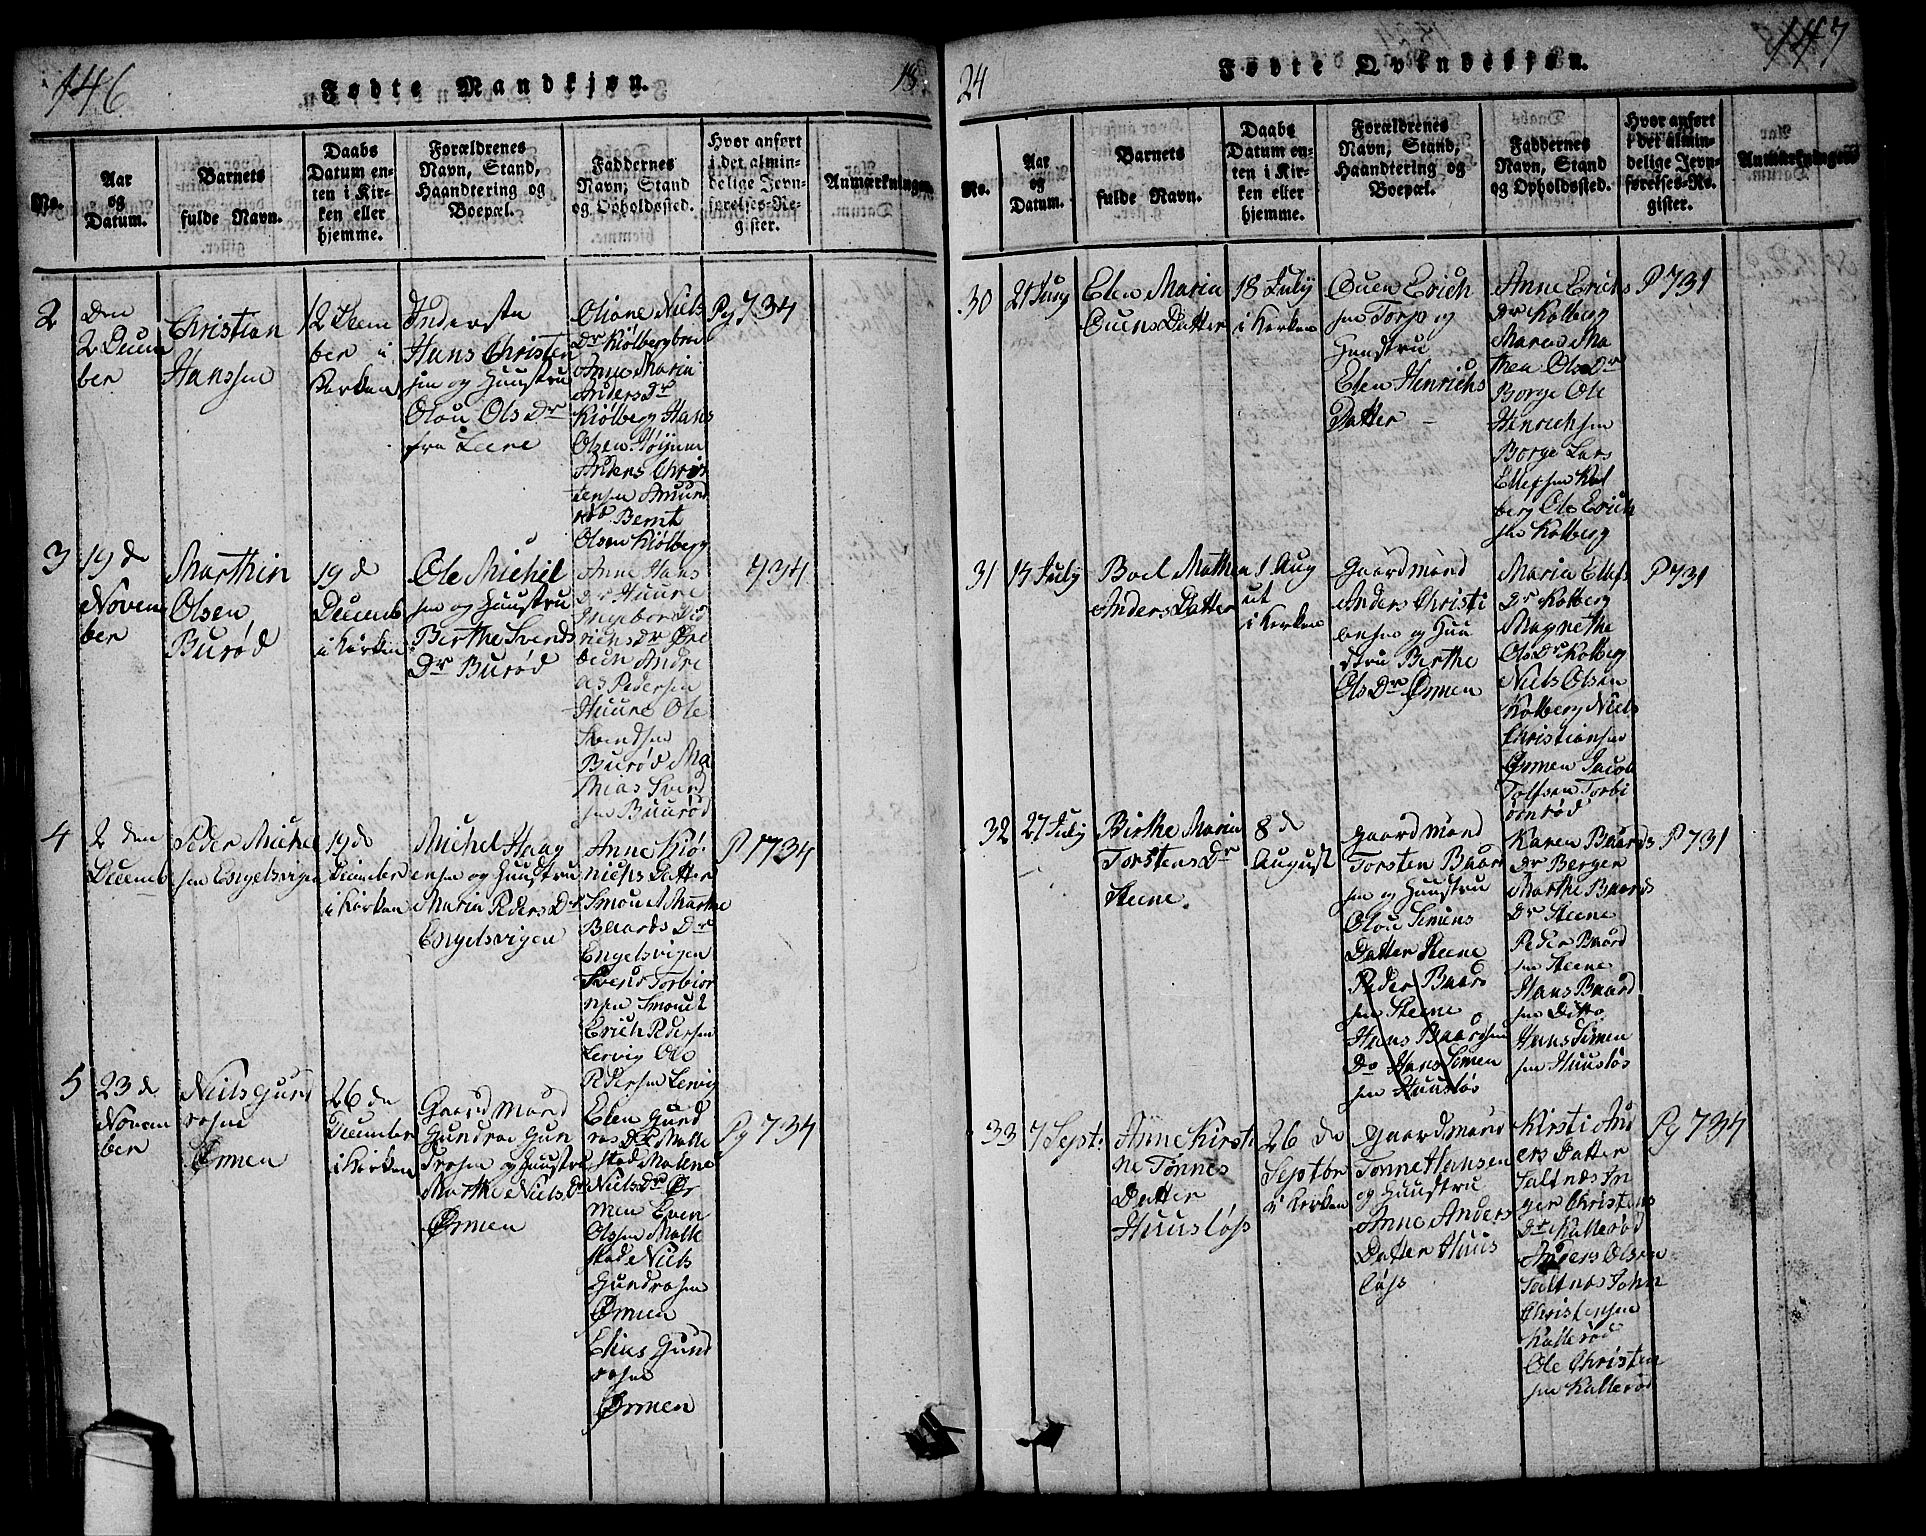 146
Fødte Mandkjøn.
18
No.
Aar
og
Datum.
Barnets
fulde Navn.
Daabs
Datum en-
ten i Kir-
ken eller
hjemme.
Forældrenes
Navn, Stand,
Haandtering og
Boepæl.
Faddernes
Navn, Stand
og Opholdssted.
Hvor anført
i det almin-
delige Jevn-
førelses-Re-
gister.
Anmærkninger.
2
den
2 Decem
ber
Christian
Hanssen
12 Decem
ber i
Kirken
Inderste
Hans Christen
sen og Huustru
Olou Ols Dr
fra Leere
Oliane Niels
Dr Kiølbergbrei
Anne Maria
Anders Dr
Kiølberg Hans
Olsen Høijum
Anders Chris
tensen Amund
rød Bernt
Olsen Kiølberg
Pg 734
3
19 de
Novem
ber
Marthin
Olsen
Burød
19 d
Decemb
i Kirken
Ole Michel
sen og Huustru
Berthe Svends
Dr Burød
Anne Hans
Dr Huure
Ingebor Did
richs Dr Øre
been Andre
as Pedersen
Huure Ole
Svendsen
Burød Ma
thias Svend
sen Buurød
734
4
2 den
Decemb
Peder Michel
sen Engelsvigen
19 d
December
i Kirken
Michel Haag
ensen og Huustru
Maria Peders Dr
Engelsvigen
Anne Kiø
nichs Datter
Smouet Marthe
Baards Dr
Engelsvigen
Svend Torbiør
nsen Smouet
Erich Pedersen
Lervig Ole
Pedersen Lervig
P 734
5
23 d
Novem
ber
Niels Gund
rosen
Ørmen
26 de
December
i Kirken
Gaardmand
Gundroe Gun
drosen og Huustru
Marthe Niels Dr
Ørmen
Elen Gund
ros Dr Malle
stad Malene
Niels Dr Ør
men Even
Olssen Malle
stad Niels
Gundrosen
Ørmen
Elius Gund
rosen
Ørmen
Pg 734
24
Fødte Qvindekjøn.
147
No.
Aar
og
Datum.
Barnets
fulde Navn.
Daabs
Datum en-
ten i Kir-
ken eller
hjemme.
Forældrenes
Navn, Stand,
Haandtering og
Boepæl.
Faddernes
Navn, Stand
og Opholdssted.
Hvor anført
i det almin-
delige Jevn-
førelses-Re-
gister.
Anmærkninger.
30
21 Juny
Elen Maria
Ouens Datter
18 July
i Kirken
Ouen Erich
sen Torp og
Huustru
Elen Henrichs
Datter
Anne Erichs
Dr Kolberg
Maren Ma
thea Ols Dr
Borge Ole
Henrichsen
Borge Lars
Ellefsen Kol
berg Ole Erich
sen Kolberg
P 731
31
14 July
Boel Mathea
Anders Datter
1 Aug
ut
i Kirken
Gaardmand
Anders Christi
ansen og Huu
stru Berthe
Ols Dr Ørmen
Maria Ellefs
Dr Kolberg
Magnethe
Ols Dr Kolberg
Niels Olsen
Kolberg Niels
Christiansen
Ørmen Jacob
Tolfsen Torbi
ørnrød
P 731
32
27 July
Birthe Maria
Torstens Dr
Steene.
8 de
August
Gaardmand
Torsten Baard
sen og Huustru
Olou Simens
Datter Steene
Peder Baard
sen Steene
Hans Baardsen
Do Hans Simen
sen Huusløs
Karen Baards
Dr Bergen
Marthe Baards
Dr Steene
Peder Baard
sen Steene
Hans Baard
sen Ditto
Hans Simen
sen Huusløs
P 731
33
7 Sept:
Anne Kirsti
ne Tønnes
Datter
Huusløss
26 de
Septbr
i Kirken
Gaardmand
Tønne Hansen
og Huustru
Anne Anders
Datter Huus
løss
Kirsti And
ers Datter
Saltnæs In
ger Christens
Dr Kallerød
Anders Olsen
Saltnæs John
Christensen
Kallerød
Ole Christen
sen Kallerød
Pg 734